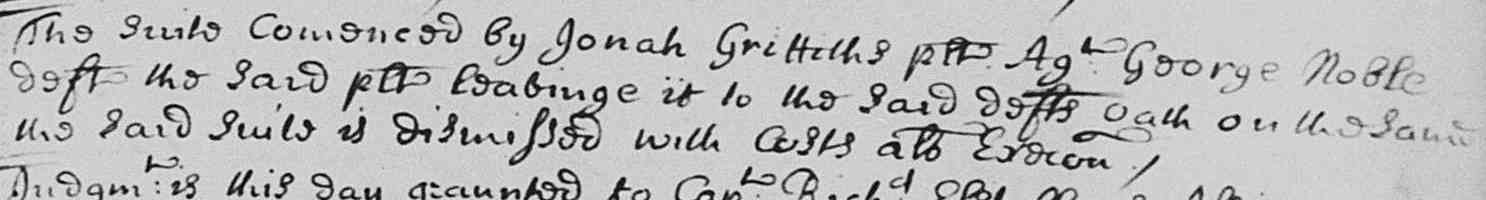 The Suite Comenced by Jonah Griffiths plt Agt: George Noble
deft the said plt leavinge it to the said defts oath on the same
the said Suite is dismissed with Costs als Execon /
Judgmt: is this day graunted to Capt: Richd